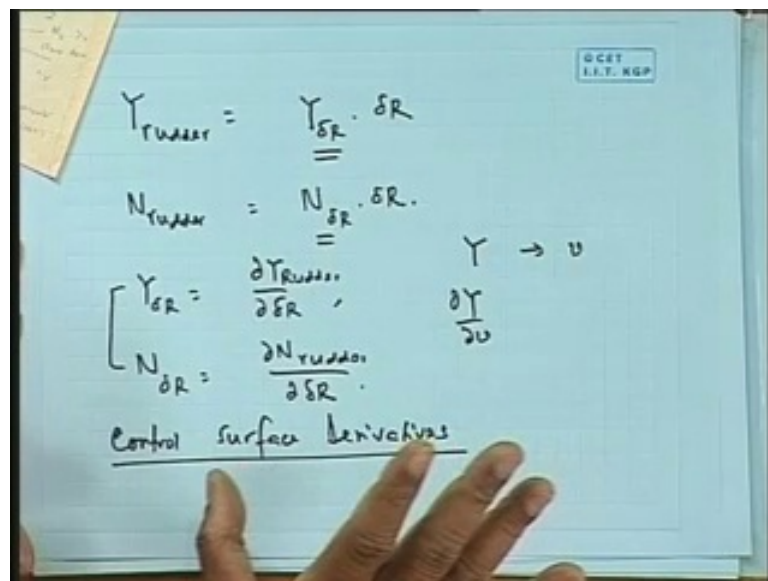 © CET
I.I.T. KGP
Y_rudder = Y_δR · δR
N_rudder = N_δR · δR.
Y → υ
Y_δR = ∂Y_Rudder / ∂δR ,
∂Y / ∂υ
N_δR = ∂N_rudder / ∂δR .
Control Surface Derivatives